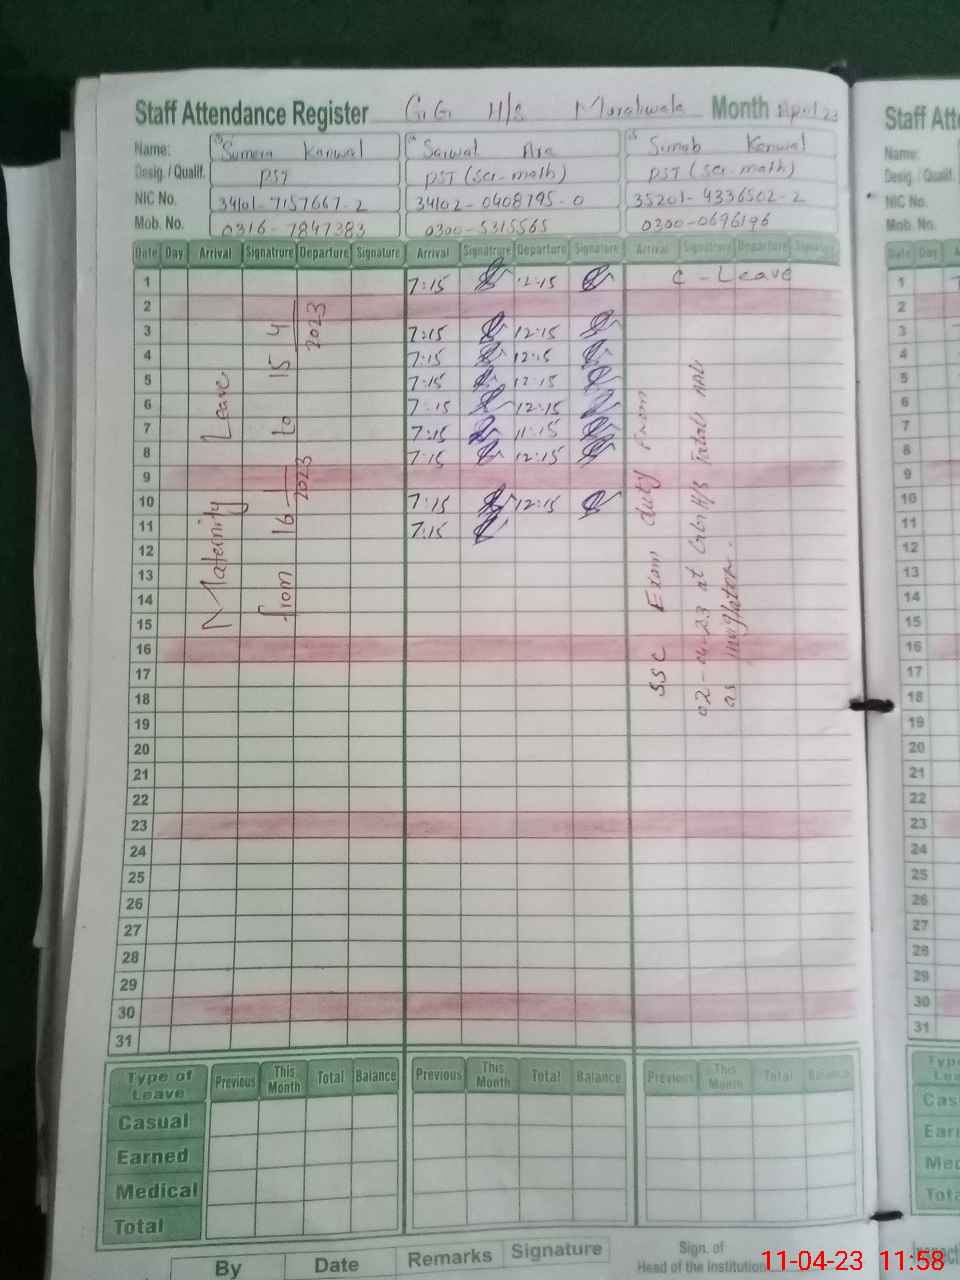 Staff Attendance Register G.G. H/S Moraliwala Month April 23
Name: Sumera Kanwal Sarwat Ara Sumab Kanwal
Desig. / Qualif. PST PST (Sci-math) PST (Sci-math)
NIC No. 34101-7157667-2 34102-0408795-0 35201-4336502-2
Mob. No. 0316-7847383 0300-5315565 0300-0696196
Date Day Arrival Signatrure Departure Signature Arrival Signatrure Departure Signature Arrival Signatrure Departure Signature
1 7:15 12:15 C-Leave
2
3 7:15 12:15
4 7:15 12:15
5 7:15 12:15
6 7:15 12:15
7 7:15 11:15
8 7:15 12:15
9
10 7:15 12:15
11 7:15
12
13
14
15
16
17
18
19
20
21
22
23
24
25
26
27
28
29
30
31
Maternity Leave
from 16-1-2023 to 15-4-2023
SSC Exam duty from
02-04-23 at H/S
as
Type of Leave Previous This Month Total Balance Previous This Month Total Balance Previous This Month Total Balance
Casual
Earned
Medical
Total
By Date Remarks Signature Sign. of
Head of the Institution
Staff Atte
Name:
Desig. / Qualif.
NIC No.
Mob. No.
Date Day
1
2
3
4
5
6
7
8
9
10
11
12
13
14
15
16
17
18
19
20
21
22
23
24
25
26
27
28
29
30
31
11-04-23 11:58